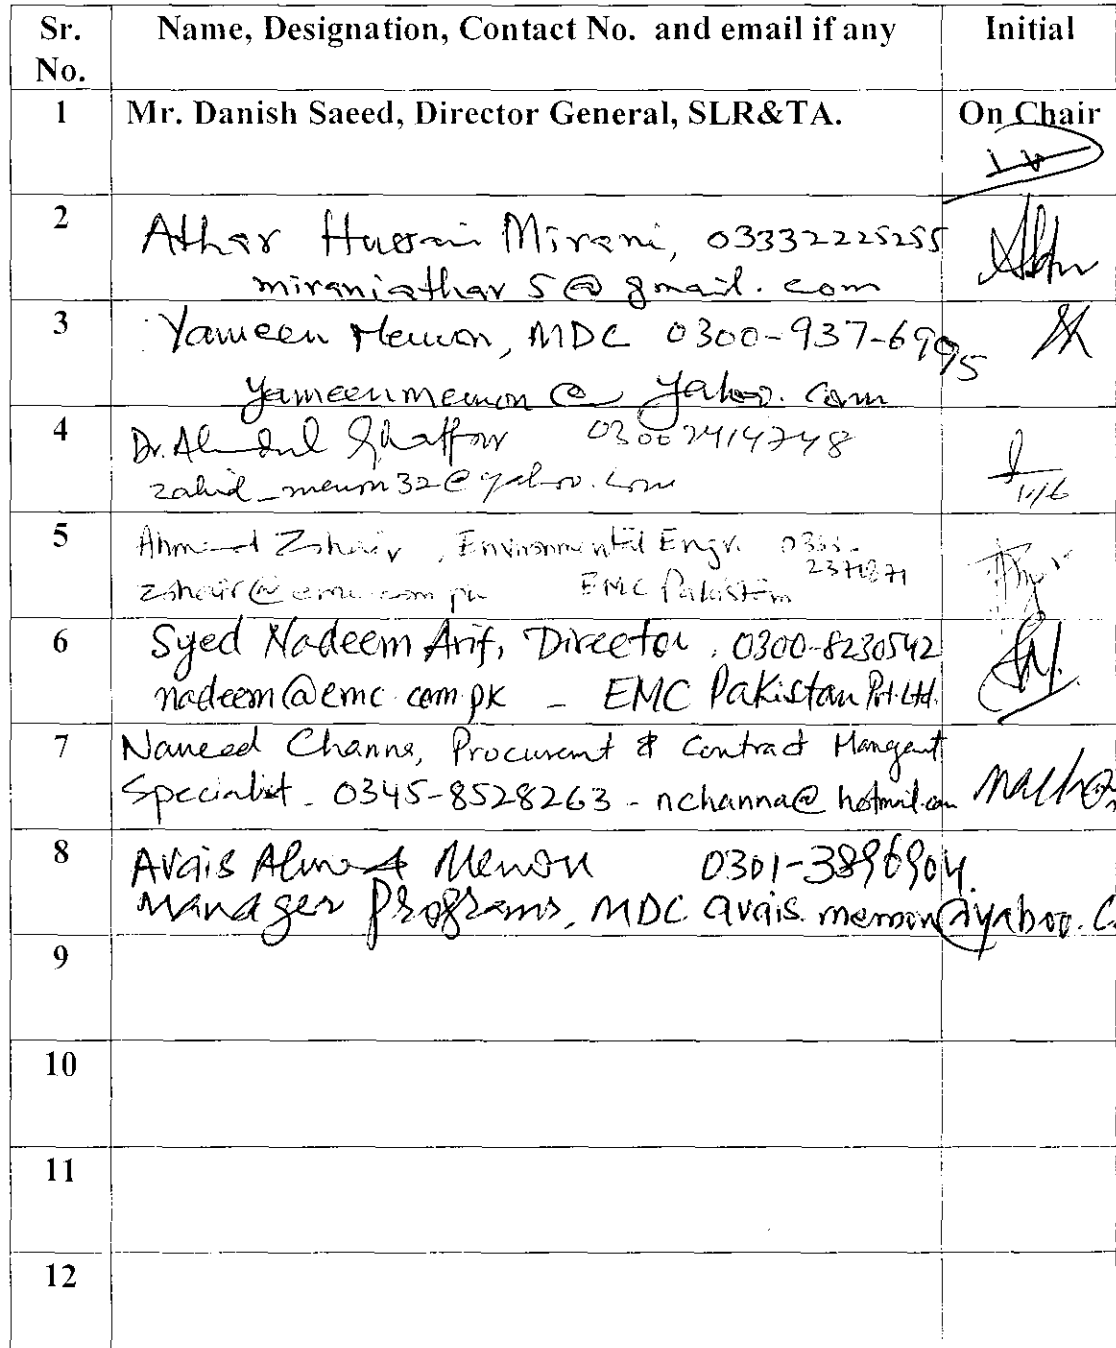 Sr. No. Name, Designation, Contact No. and email if any Initial
1 Mr. Danish Saeed, Director General, SLR&TA. On Chair
2 Athar Hussain Mirani, 03332225255
miraniathar5@gmail.com
3 Yameen Memon, MDC 0300-937-6995
yameenmemon@yahoo.com
4 Dr. Abdul Ghaffar 03002414748
zahid_memon32@yahoo.com
5 Ahmed Zohair, Environmental Engr. 0333-
2371871
zohair@emc.com.pk EMC Pakistan
6 Syed Nadeem Arif, Director, 0300-8230542
nadeem@emc.com.pk - EMC Pakistan Pvt. Ltd.
7 Naveed Channa, Procurment & Contract Mangent
Specialist - 0345-8528263 - nchanna@hotmail.com
8 Avais Ahmed Memon 0301-3896904.
Manager Programs, MDC avais.memon@yahoo.c
9
10
11
12